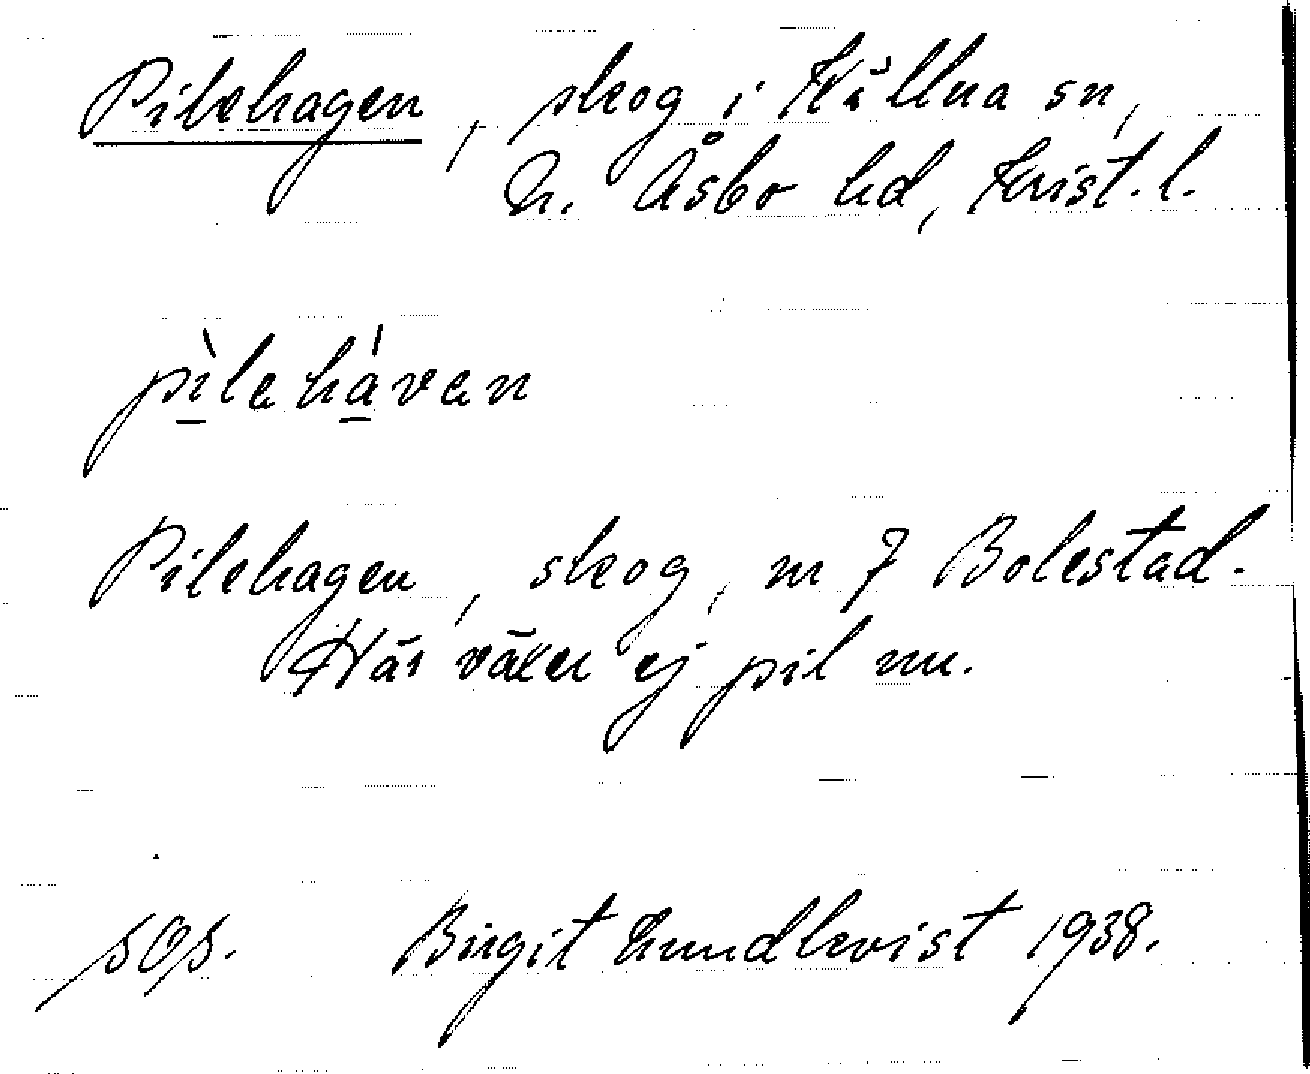 Pilehagen, skog i Källna sn,
N. Åsbo hd, Krist. l.
pìlehávan
Pilehagen, skog, m 7 Bolestad.
Här växer ej pil nu.
Birgit Lundkvist 1938.